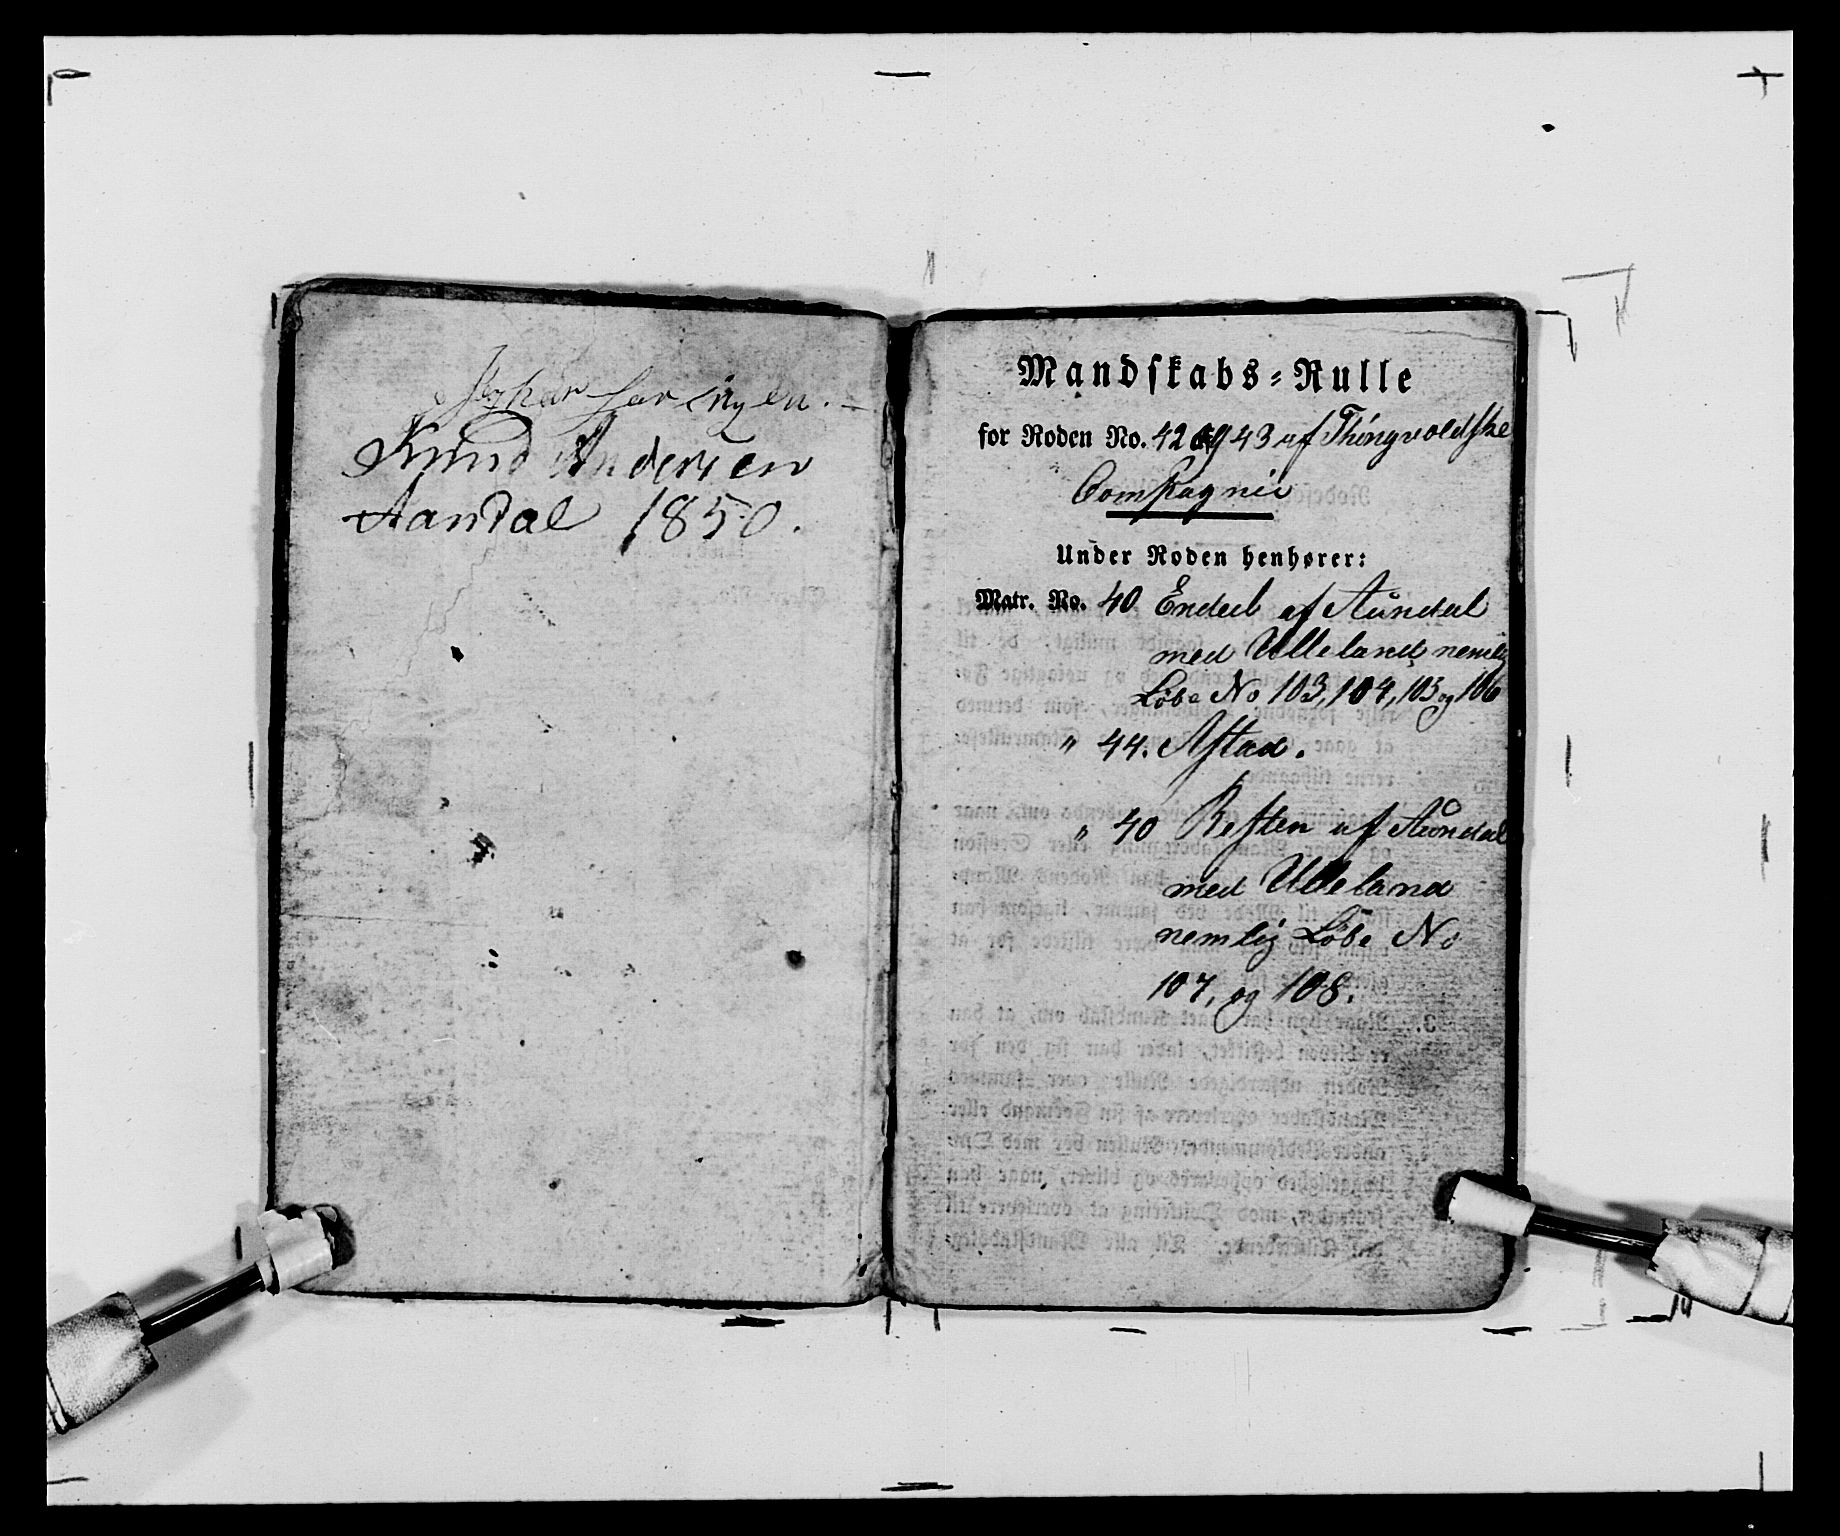 Knud Andersen
Aandal 1850.
Mandskabs-Rulle
for Roden No. 42 og 43 af Thingvoldske
Compagnie
Under Roden henhører:
Matr. No. 40 Endeel af Aandal
med Ulleland nemlig
Löbe No 103, 104, 105 og 106
" 44. Astad.
" 40 Resten af Aandal
med Ulleland
nemlig Löbe No
107, og 108.